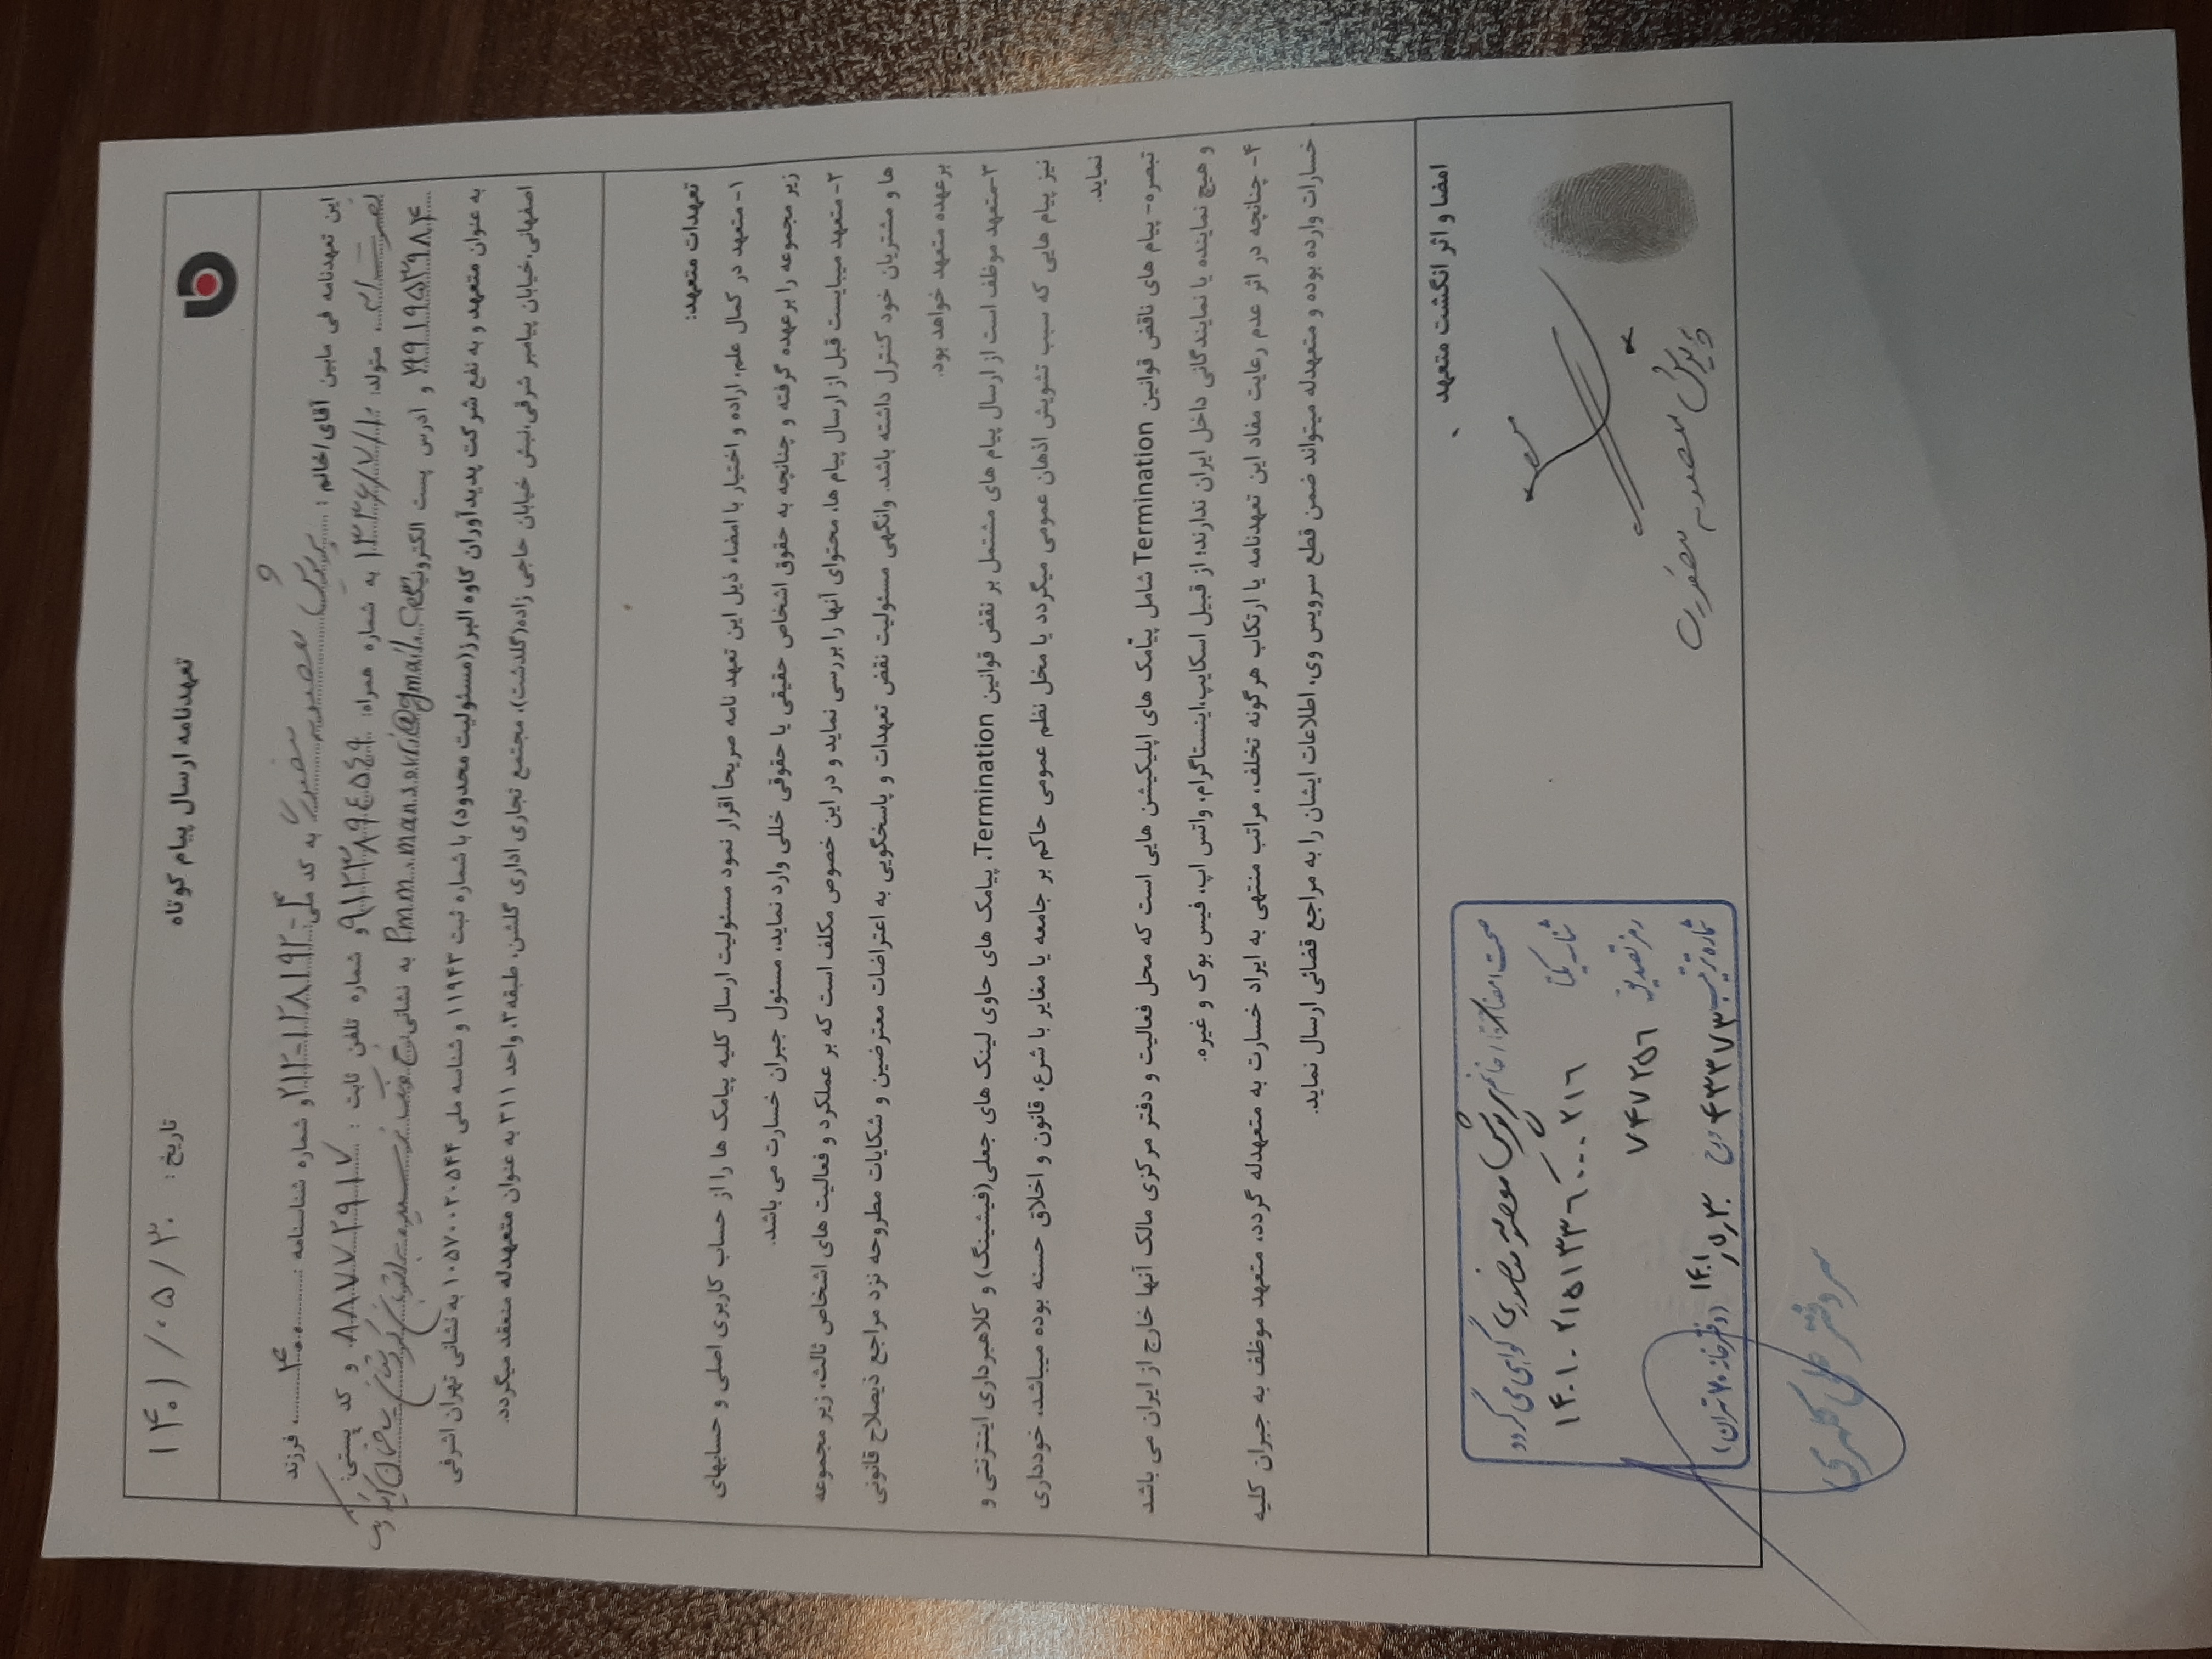 تعهدنامه ارسال پیام کوتاه
تاریخ: ۱۴۰۱/۰۵/۳۰
این تعهدنامه فی مابین آقای/خانم: پریوش معصومه منصوری به کد ملی: ۴-۱۲۸۱۹۲-۲۱۲ و شماره شناسنامه: ۴۰۰، فرزند
نصرت اله، متولد: ۱۳۳۶/۷/۱۰ به شماره همراه: ۹۱۲۳۸۹۴۵۴۹ و شماره تلفن ثابت: ۸۸۷۷۲۹۱۷ و کد پستی:
۱۹۹۱۹۵۳۹۸۴ و آدرس پست الکترونیک: Pmm.mansouri@gmail.com به نشانی: خ ونک نرسیده به اتوبان کردستان ساختمان آینه ونک
به عنوان متعهد و به نفع شرکت پدیدآوران کاوه البرز(مسئولیت محدود) با شماره ثبت ۱۱۹۴۳ و شناسه ملی ۱۰۵۷۰۰۲۰۵۴۴ به نشانی تهران اشرفی
اصفهانی،خیابان پیامبر شرقی،نبش خیابان حاجی زاده(گلدشت)، مجتمع تجاری اداری گلشن، طبقه۳، واحد ۳۱۱ به عنوان متعهدله منعقد میگردد.
تعهدات متعهد:
۱- متعهد در کمال علم، اراده و اختیار با امضاء ذیل این تعهد نامه صریحاً اقرار نمود مسئولیت ارسال کلیه پیامک ها را از حساب کاربری اصلی و حسابهای
زیر مجموعه را برعهده گرفته و چنانچه به حقوق اشخاص حقیقی یا حقوقی خللی وارد نماید، مسئول جبران خسارت می باشد.
۲- متعهد میبایست قبل از ارسال پیام ها، محتوای آنها را بررسی نماید و در این خصوص مکلف است که بر عملکرد و فعالیت های اشخاص ثالث، زیر مجموعه
ها و مشتریان خود کنترل داشته باشد. وانگهی مسئولیت نقض تعهدات و پاسخگویی به اعتراضات معترضین و شکایات مطروحه نزد مراجع ذیصلاح قانونی
برعهده متعهد خواهد بود.
۳-متعهد موظف است از ارسال پیام های مشتمل بر نقض قوانین Termination، پیامک های حاوی لینک های جعلی(فیشینگ) و کلاهبرداری اینترنتی و
نیز پیام هایی که سبب تشویش اذهان عمومی میگردد یا مخل نظم عمومی حاکم بر جامعه یا مغایر با شرع، قانون و اخلاق حسنه بوده میباشد، خودداری
نماید.
تبصره- پیام های ناقض قوانین Termination شامل پیامک های اپلیکیشن هایی است که محل فعالیت و دفتر مرکزی مالک آنها خارج از ایران می باشد
و هیچ نماینده یا نمایندگانی داخل ایران ندارند؛ از قبیل اسکایپ،اینستاگرام، واتس اپ، فیس بوک و غیره.
۴- چنانچه در اثر عدم رعایت مفاد این تعهدنامه یا ارتکاب هرگونه تخلف، مراتب منتهی به ایراد خسارت به متعهدله گردد، متعهد موظف به جبران کلیه
خسارات وارده بوده و متعهدله میتواند ضمن قطع سرویس وی، اطلاعات ایشان را به مراجع قضائی ارسال نماید.
امضا و اثر انگشت متعهد
پریوش معصومه منصوری
صحت امضاء آقا/خانم پریوش معصومه منصوری گواهی می گردد
شناسه یکتا ۱۴۰۱۰۲۱۵۱۳۳۶۰۰۰۲۱۶
رمز تصدیق ۷۴۷۲۵۶
شماره ترتیب ۴۳۳۷۳ مورخ ۱۴۰۱/۵/۳۰ (دفترخانه ۷۰ تهران)
سردفتر علی کلهری